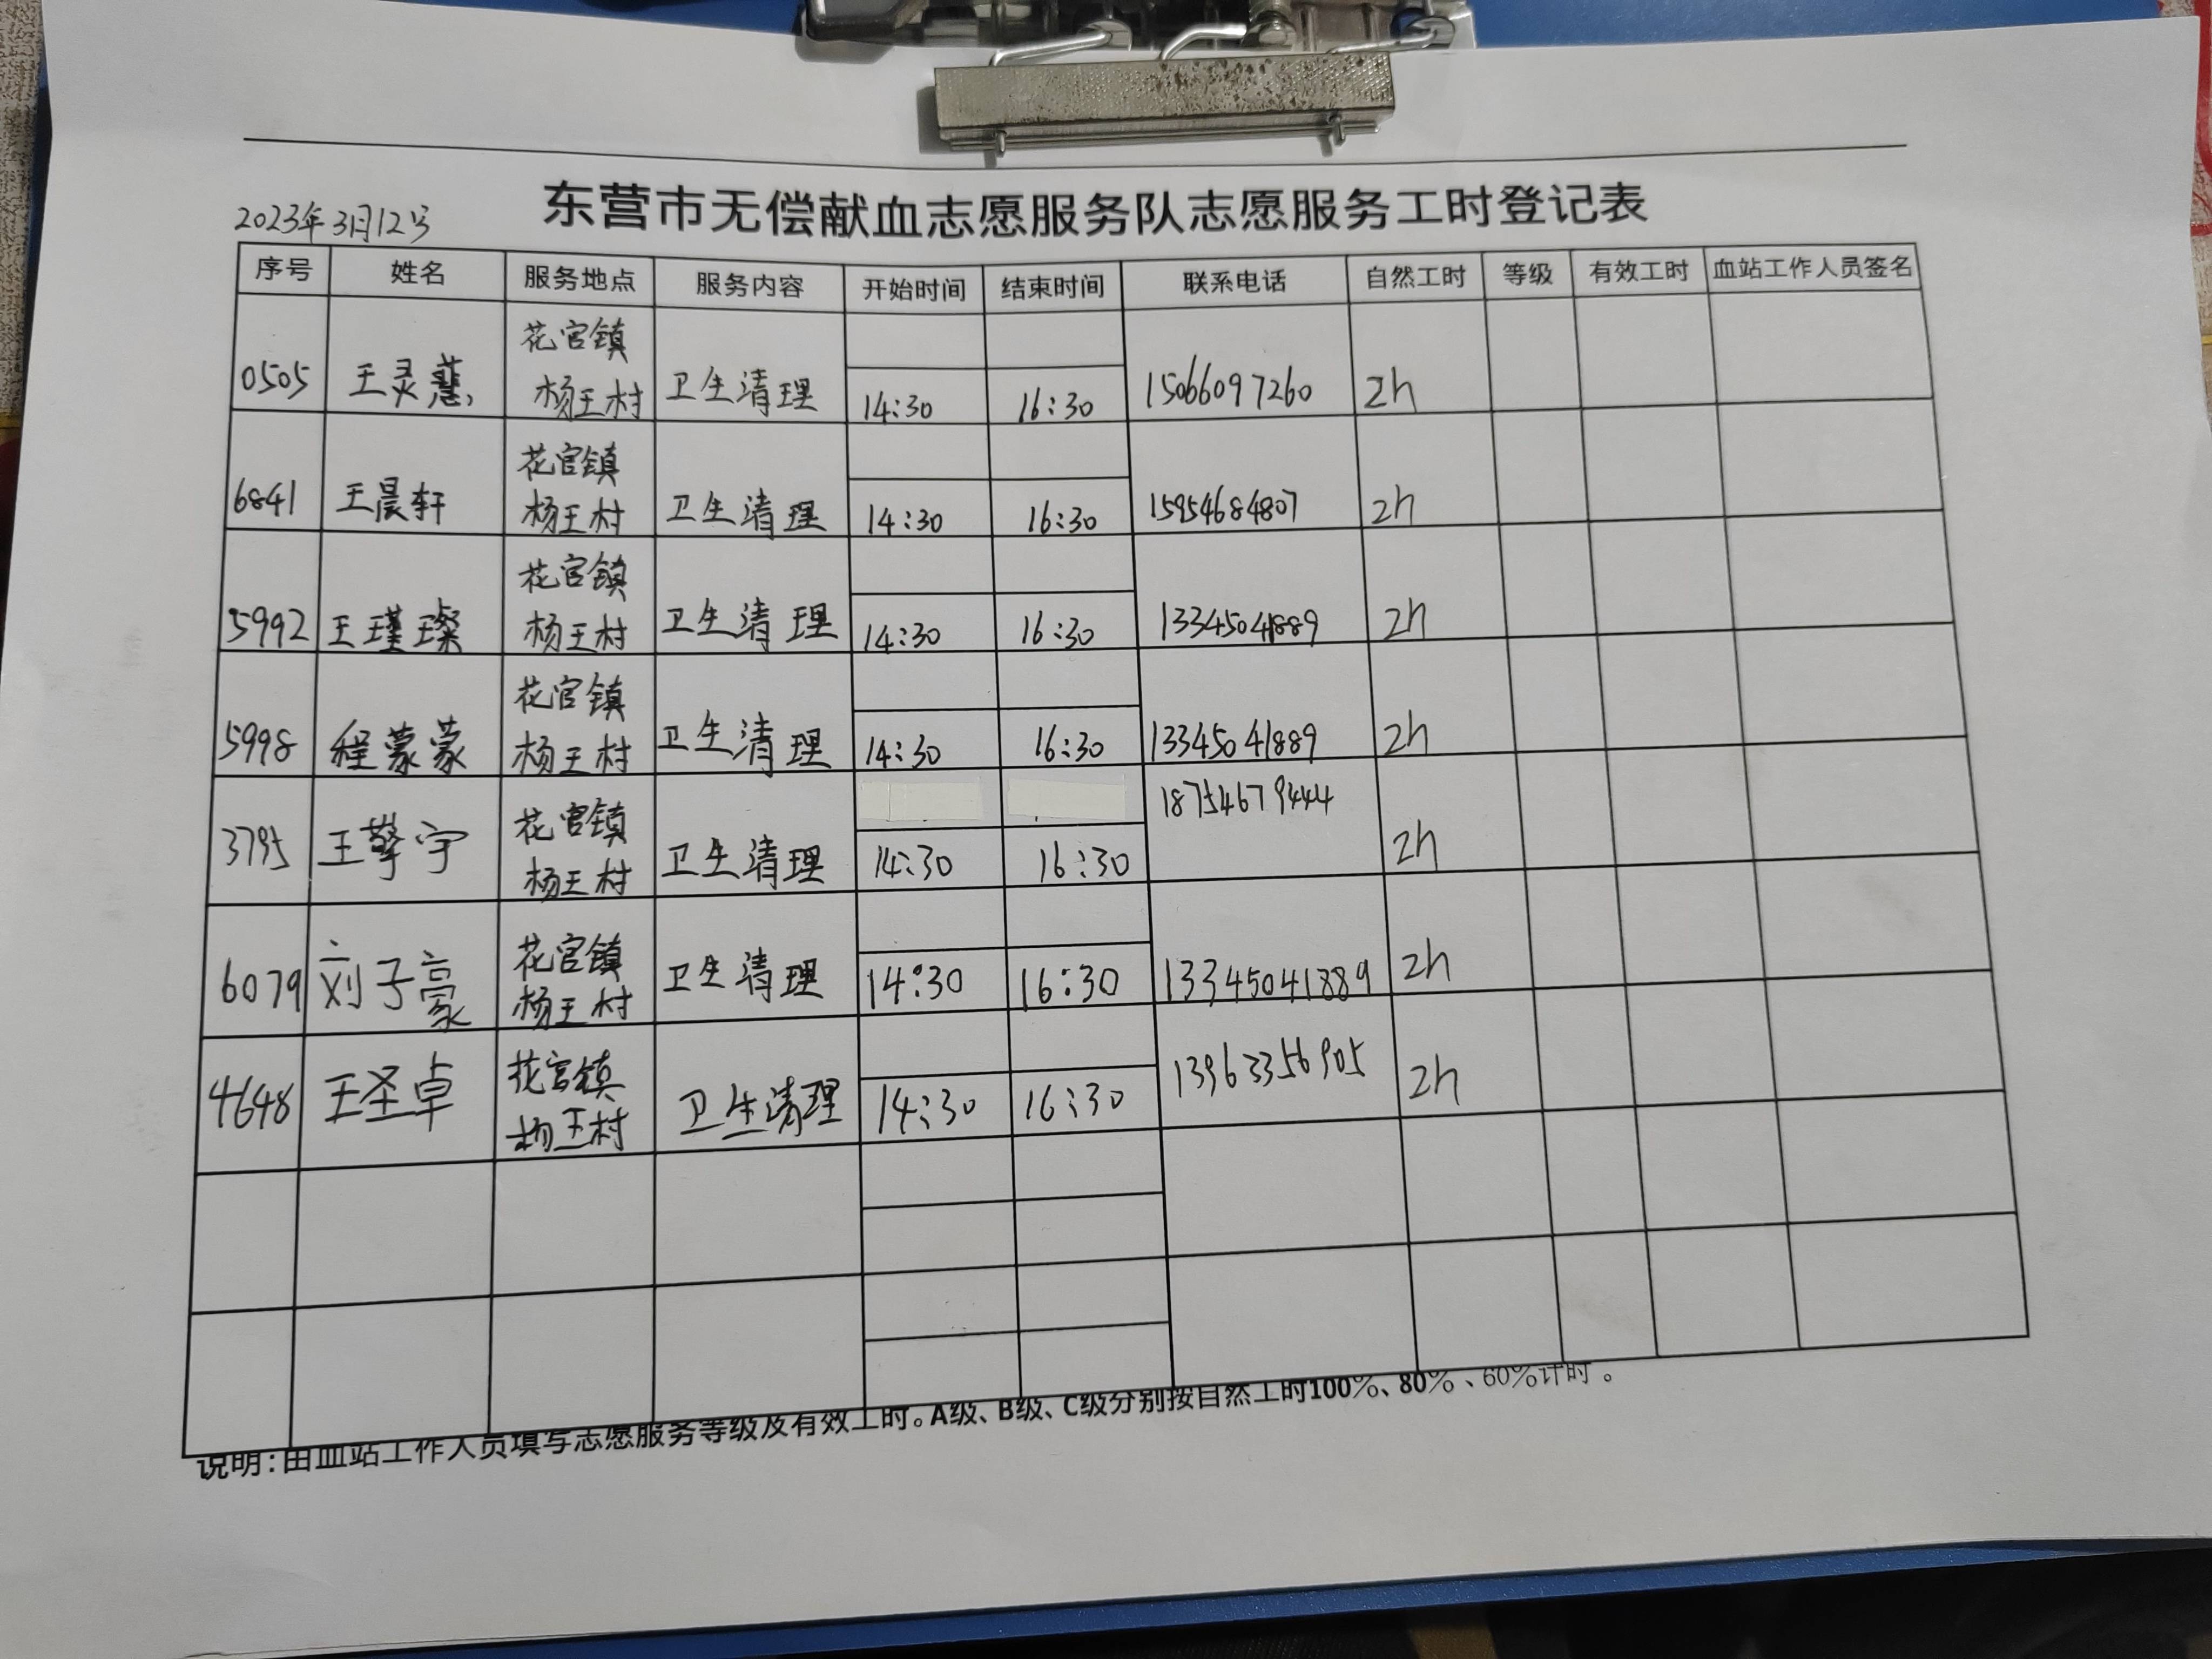 东营市无偿献血志愿服务队志愿服务工时登记表
2023年3月12号
序号 姓名 服务地点 服务内容 开始时间 结束时间 联系电话 自然工时 等级 有效工时 血站工作人员签名
花官镇
0505 王灵慧 杨王村 卫生清理 14:30 16:30 15066097260 2h
花官镇
6841 王晨轩 杨王村 卫生清理 14:30 16:30 15954684807 2h
花官镇
5992 王瑾璨 杨王村 卫生清理 14:30 16:30 13345041889 2h
花官镇
5998 程蒙蒙 杨王村 卫生清理 14:30 16:30 13345041889 2h
花官镇 18754679444
3795 王擎宇 杨王村 卫生清理 14:30 16:30 2h
花官镇
6079 刘子豪 杨王村 卫生清理 14:30 16:30 13345041889 2h
花官镇 13963356905
4648 王圣卓 杨王村 卫生清理 14:30 16:30 2h
说明:由血站工作人员填写志愿服务等级及有效工时。A级、B级、C级分别按自然工时100%、80%、60%计时。